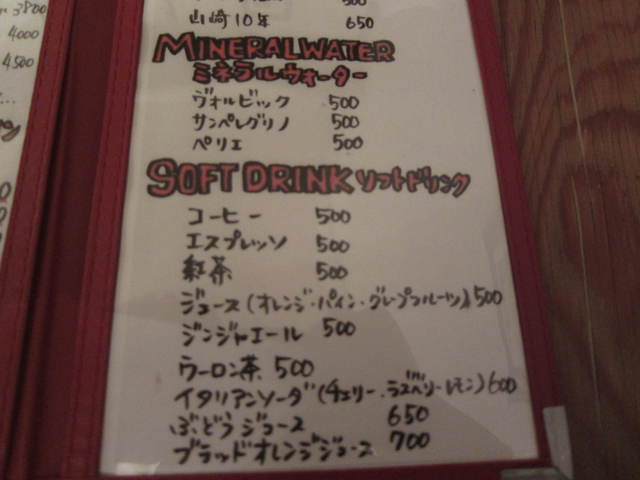 3800
4000
4500
500
山崎10年 650
MINERALWATER
ミネラルウォーター
ヴォルビック 500
サンペレグリノ 500
ペリエ 500
SOFT DRINK ソフトドリンク
コーヒー 500
エスプレッソ 500
紅茶 500
ジュース(オレンジ・パイン・グレープフルーツ)500
ジンジャエール 500
ウーロン茶 500
イタリアンソーダ(チェリー・ラズベリー・レモン)600
ぶどうジュース 650
ブラッドオレンジジュース 700